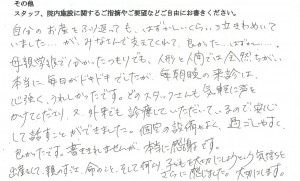 その他
スタッフ、院内施設に関するご指摘やご要望などご自由にお書きください。
自分のお産をふり返っても、はずかしいくらい、泣きわめいて
いました…が、みなさんで支えてくれて、良かった…はずかしい…。
母親学級で分かったつもりでも、人形と人間では全然ちがい、
本当に毎日がドキドキでしたが、毎朝晩の来診は、
心強く、うれしかったです。どのスタッフさんも気軽に声を
かけてくださり、又外来でも診療していただいているので安心し
て話すことができました。個室の設備もよく、過ごしやすく、
良かったです。書ききれませんが、本当に感謝です。
出産にして親のすは、命のこと、そして何より子どもを大切にしようという気持ちを
さらに感じました。大切にします。